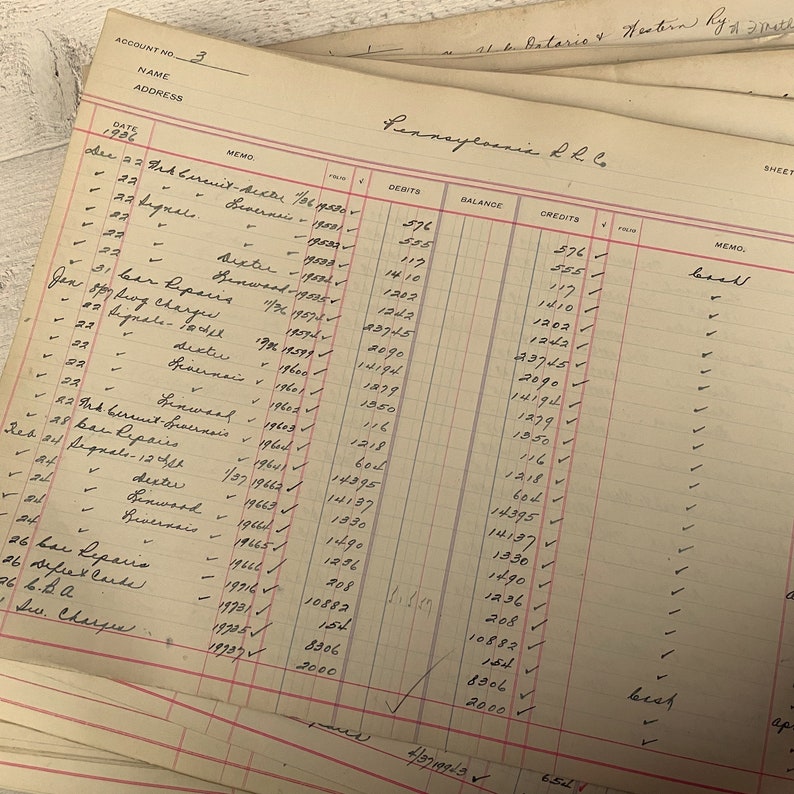 Ontario & Western Ry
ACCOUNT NO. 3
NAME
ADDRESS
Pennsylvania R R Co
SHEET
DATE MEMO. FOLIO √ DEBITS BALANCE CREDITS √ FOLIO MEMO.
1936
Dec 22 Trk Circuit - Dexter 11/36 19530 ✓ 576 576 ✓ Cash
✓ 22 ✓ Livernois ✓ 19531 ✓ 555 555 ✓ ✓
✓ 22 Signals ✓ ✓ 19532 ✓ 117 117 ✓ ✓
✓ 22 ✓ Dexter ✓ 19533 ✓ 1410 1410 ✓ ✓
✓ 22 ✓ Linwood ✓ 19534 ✓ 1202 1202 ✓ ✓
✓ 22 19535 ✓ 1242 1242 ✓ ✓
✓ 31 Car Repairs 11/36 19572 ✓ 23745 23745 ✓ ✓
Jan 8/37 Swg Charges 19574 ✓ 2090 2090 ✓ ✓
✓ 22 Signals - 12 12/36 19599 ✓ 14194 14194 ✓ ✓
✓ 22 ✓ Dexter ✓ 19600 ✓ 1279 1279 ✓ ✓
✓ 22 ✓ Livernois ✓ 19601 ✓ 1350 1350 ✓ ✓
✓ 22 ✓ ✓ 19602 ✓ 116 116 ✓ ✓
✓ 22 ✓ Linwood ✓ 19603 ✓ 1218 1218 ✓ ✓
✓ 22 Trk Circuit - Livernois ✓ 19604 ✓ 604 604 ✓ ✓
✓ 28 Car Repairs ✓ 19641 ✓ 14395 14395 ✓ ✓
Feb 24 Signals - 12 1/37 19662 ✓ 14137 14137 ✓ ✓
✓ 24 ✓ Dexter ✓ 19663 ✓ 1330 1330 ✓ ✓
✓ 24 ✓ Linwood ✓ 19664 ✓ 1490 1490 ✓ ✓
✓ 24 ✓ Livernois ✓ 19665 ✓ 1236 1236 ✓ ✓
✓ 24 ✓ ✓ ✓ 19666 ✓ 208 208 ✓ ✓
26 Car Repairs ✓ 19716 ✓ 10882 10882 ✓ ✓
26 Cards 19731 ✓ 154 154 ✓ Cash
26 19735 ✓ 8306 8306 ✓ ✓
Sw. Charges 19737 ✓ 2000 2000 ✓ ✓
4/37 19943 ✓ 654 ✓